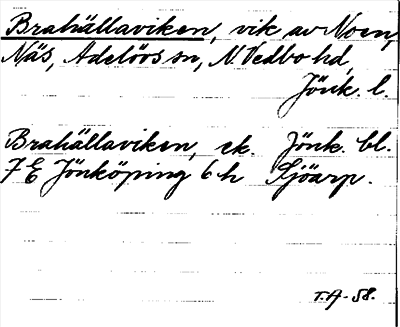 Brahällaviken, vik av Noen,
Näs, Adelövs sn, N. Vedbo hd,
Jönk. l.
Brahällaviken, ek. Jönk. bl.
7E Jönköping 6 h Sjöarp.
T.A-58.